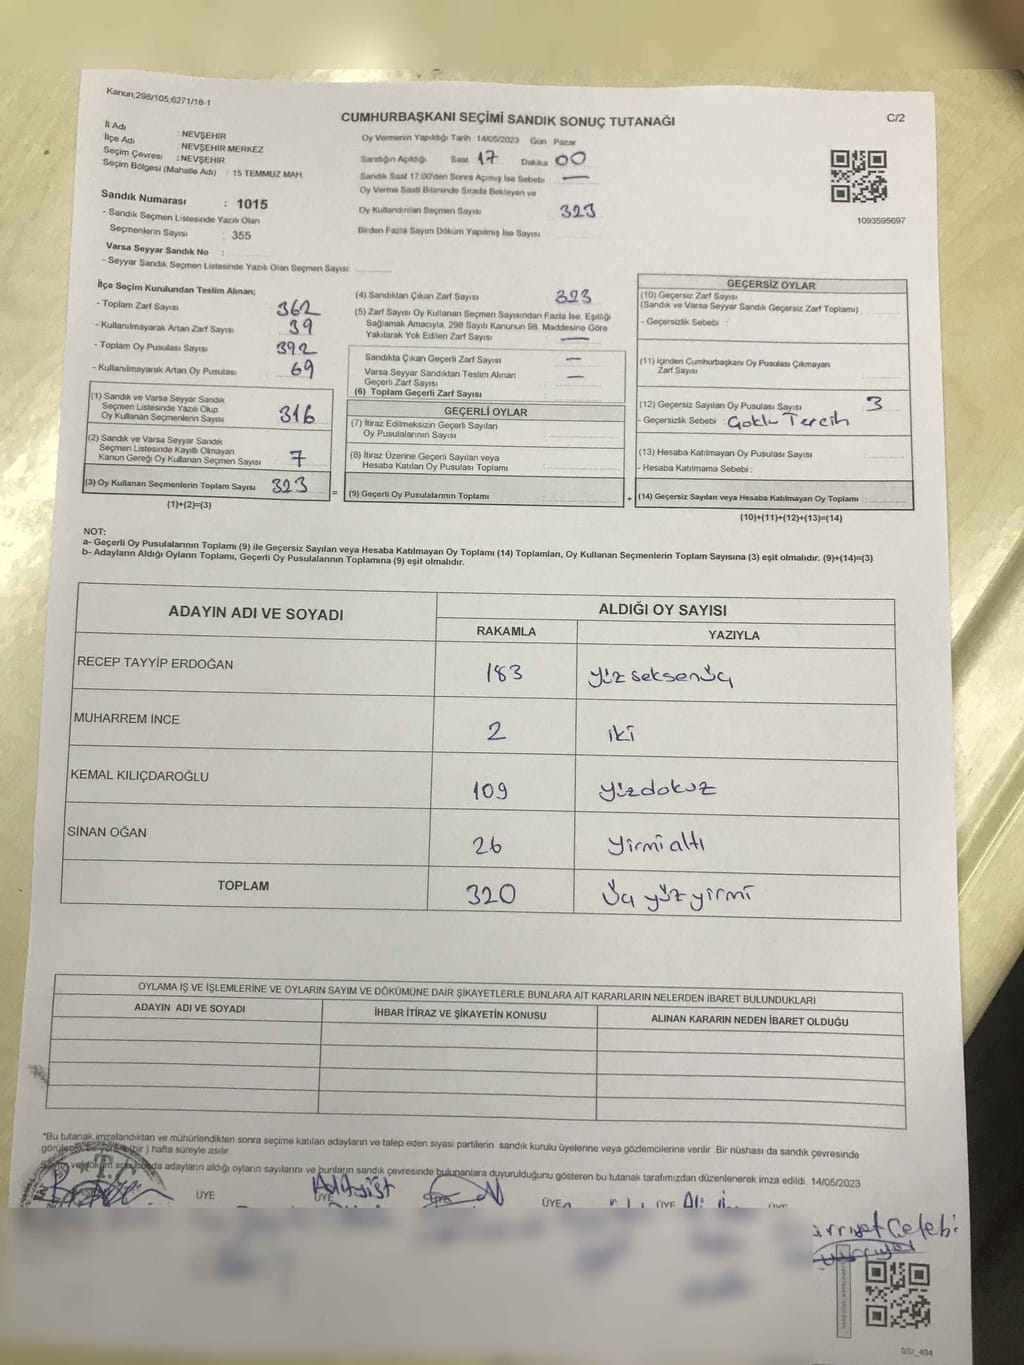 Kanun;298/105;6271/18-1
CUMHURBAŞKANI SEÇİMİ SANDIK SONUÇ TUTANAĞI
C/2
İl Adı : NEVŞEHİR
İlçe Adı : NEVŞEHİR MERKEZ
Seçim Çevresi : NEVŞEHİR
Seçim Bölgesi (Mahalle Adı) : 15 TEMMUZ MAH.
Sandık Numarası : 1015
- Sandık Seçmen Listesinde Yazılı Olan
Seçmenlerin Sayısı : 355
Varsa Seyyar Sandık No :
- Seyyar Sandık Seçmen Listesinde Yazılı Olan Seçmen Sayısı:
Oy Vermenin Yapıldığı Tarih : 14/05/2023 Gün Pazar
Sandığın Açıldığı Saat 17 Dakika 00
Sandık Saat 17:00'den Sonra Açılmış İse Sebebi : —
Oy Verme Saati Bitiminde Sırada Bekleyen ve
Oy Kullandırılan Seçmen Sayısı 323
Birden Fazla Sayım Döküm Yapılmış İse Sayısı
1093595697
İlçe Seçim Kurulundan Teslim Alınan;
- Toplam Zarf Sayısı 362
- Kullanılmayarak Artan Zarf Sayısı 39
- Toplam Oy Pusulası Sayısı 392
- Kullanılmayarak Artan Oy Pusulası 69
(1) Sandık ve Varsa Seyyar Sandık
Seçmen Listesinde Yazılı Olup
Oy Kullanan Seçmenlerin Sayısı 316
(2) Sandık ve Varsa Seyyar Sandık
Seçmen Listesinde Kayıtlı Olmayan
Kanun Gereği Oy Kullanan Seçmen Sayısı 7
(3) Oy Kullanan Seçmenlerin Toplam Sayısı 323
(1)+(2)=(3)
(4) Sandıktan Çıkan Zarf Sayısı 323
(5) Zarf Sayısı Oy Kullanan Seçmen Sayısından Fazla İse, Eşitliği
Sağlamak Amacıyla, 298 Sayılı Kanunun 98. Maddesine Göre
Yakılarak Yok Edilen Zarf Sayısı —
Sandıkta Çıkan Geçerli Zarf Sayısı —
Varsa Seyyar Sandıktan Teslim Alınan
Geçerli Zarf Sayısı —
(6) Toplam Geçerli Zarf Sayısı
GEÇERLİ OYLAR
(7) İtiraz Edilmeksizin Geçerli Sayılan
Oy Pusulalarının Sayısı :
(8) İtiraz Üzerine Geçerli Sayılan veya
Hesaba Katılan Oy Pusulası Toplamı :
= (9) Geçerli Oy Pusulalarının Toplamı :
GEÇERSİZ OYLAR
(10) Geçersiz Zarf Sayısı
(Sandık ve Varsa Seyyar Sandık Geçersiz Zarf Toplamı)
- Geçersizlik Sebebi :
(11) İçinden Cumhurbaşkanı Oy Pusulası Çıkmayan
Zarf Sayısı
(12) Geçersiz Sayılan Oy Pusulası Sayısı 3
- Geçersizlik Sebebi : Çoklu Tercih
(13) Hesaba Katılmayan Oy Pusulası Sayısı
- Hesaba Katılmama Sebebi :
+ (14) Geçersiz Sayılan veya Hesaba Katılmayan Oy Toplamı :
(10)+(11)+(12)+(13)=(14)
NOT:
a- Geçerli Oy Pusulalarının Toplamı (9) ile Geçersiz Sayılan veya Hesaba Katılmayan Oy Toplamı (14) Toplamları, Oy Kullanan Seçmenlerin Toplam Sayısına (3) eşit olmalıdır. (9)+(14)=(3)
b- Adayların Aldığı Oyların Toplamı, Geçerli Oy Pusulalarının Toplamına (9) eşit olmalıdır.
ADAYIN ADI VE SOYADI
ALDIĞI OY SAYISI
RAKAMLA YAZIYLA
RECEP TAYYİP ERDOĞAN 183 Yüz seksenüç
MUHARREM İNCE 2 iki
KEMAL KILIÇDAROĞLU 109 yüzdokuz
SİNAN OĞAN 26 Yirmialtı
TOPLAM 320 Üç yüz yirmi
OYLAMA İŞ VE İŞLEMLERİNE VE OYLARIN SAYIM VE DÖKÜMÜNE DAİR ŞİKAYETLERLE BUNLARA AİT KARARLARIN NELERDEN İBARET BULUNDUKLARI
ADAYIN ADI VE SOYADI İHBAR İTİRAZ VE ŞİKAYETİN KONUSU ALINAN KARARIN NEDEN İBARET OLDUĞU
*Bu tutanak imzalandıktan ve mühürlendikten sonra seçime katılan adayların ve talep eden siyasi partilerin sandık kurulu üyelerine veya gözlemcilerine verilir. Bir nüshası da sandık çevresinde
(bir) hafta süreyle asılır.
adayların aldığı oyların sayılarını ve bunların sandık çevresinde bulunanlara duyurulduğunu gösteren bu tutanak tarafımızdan düzenlenerek imza edildi. 14/05/2023
T.C.
ÜYE ÜYE ÜYE ÜYE
Çelebi
SSI_404